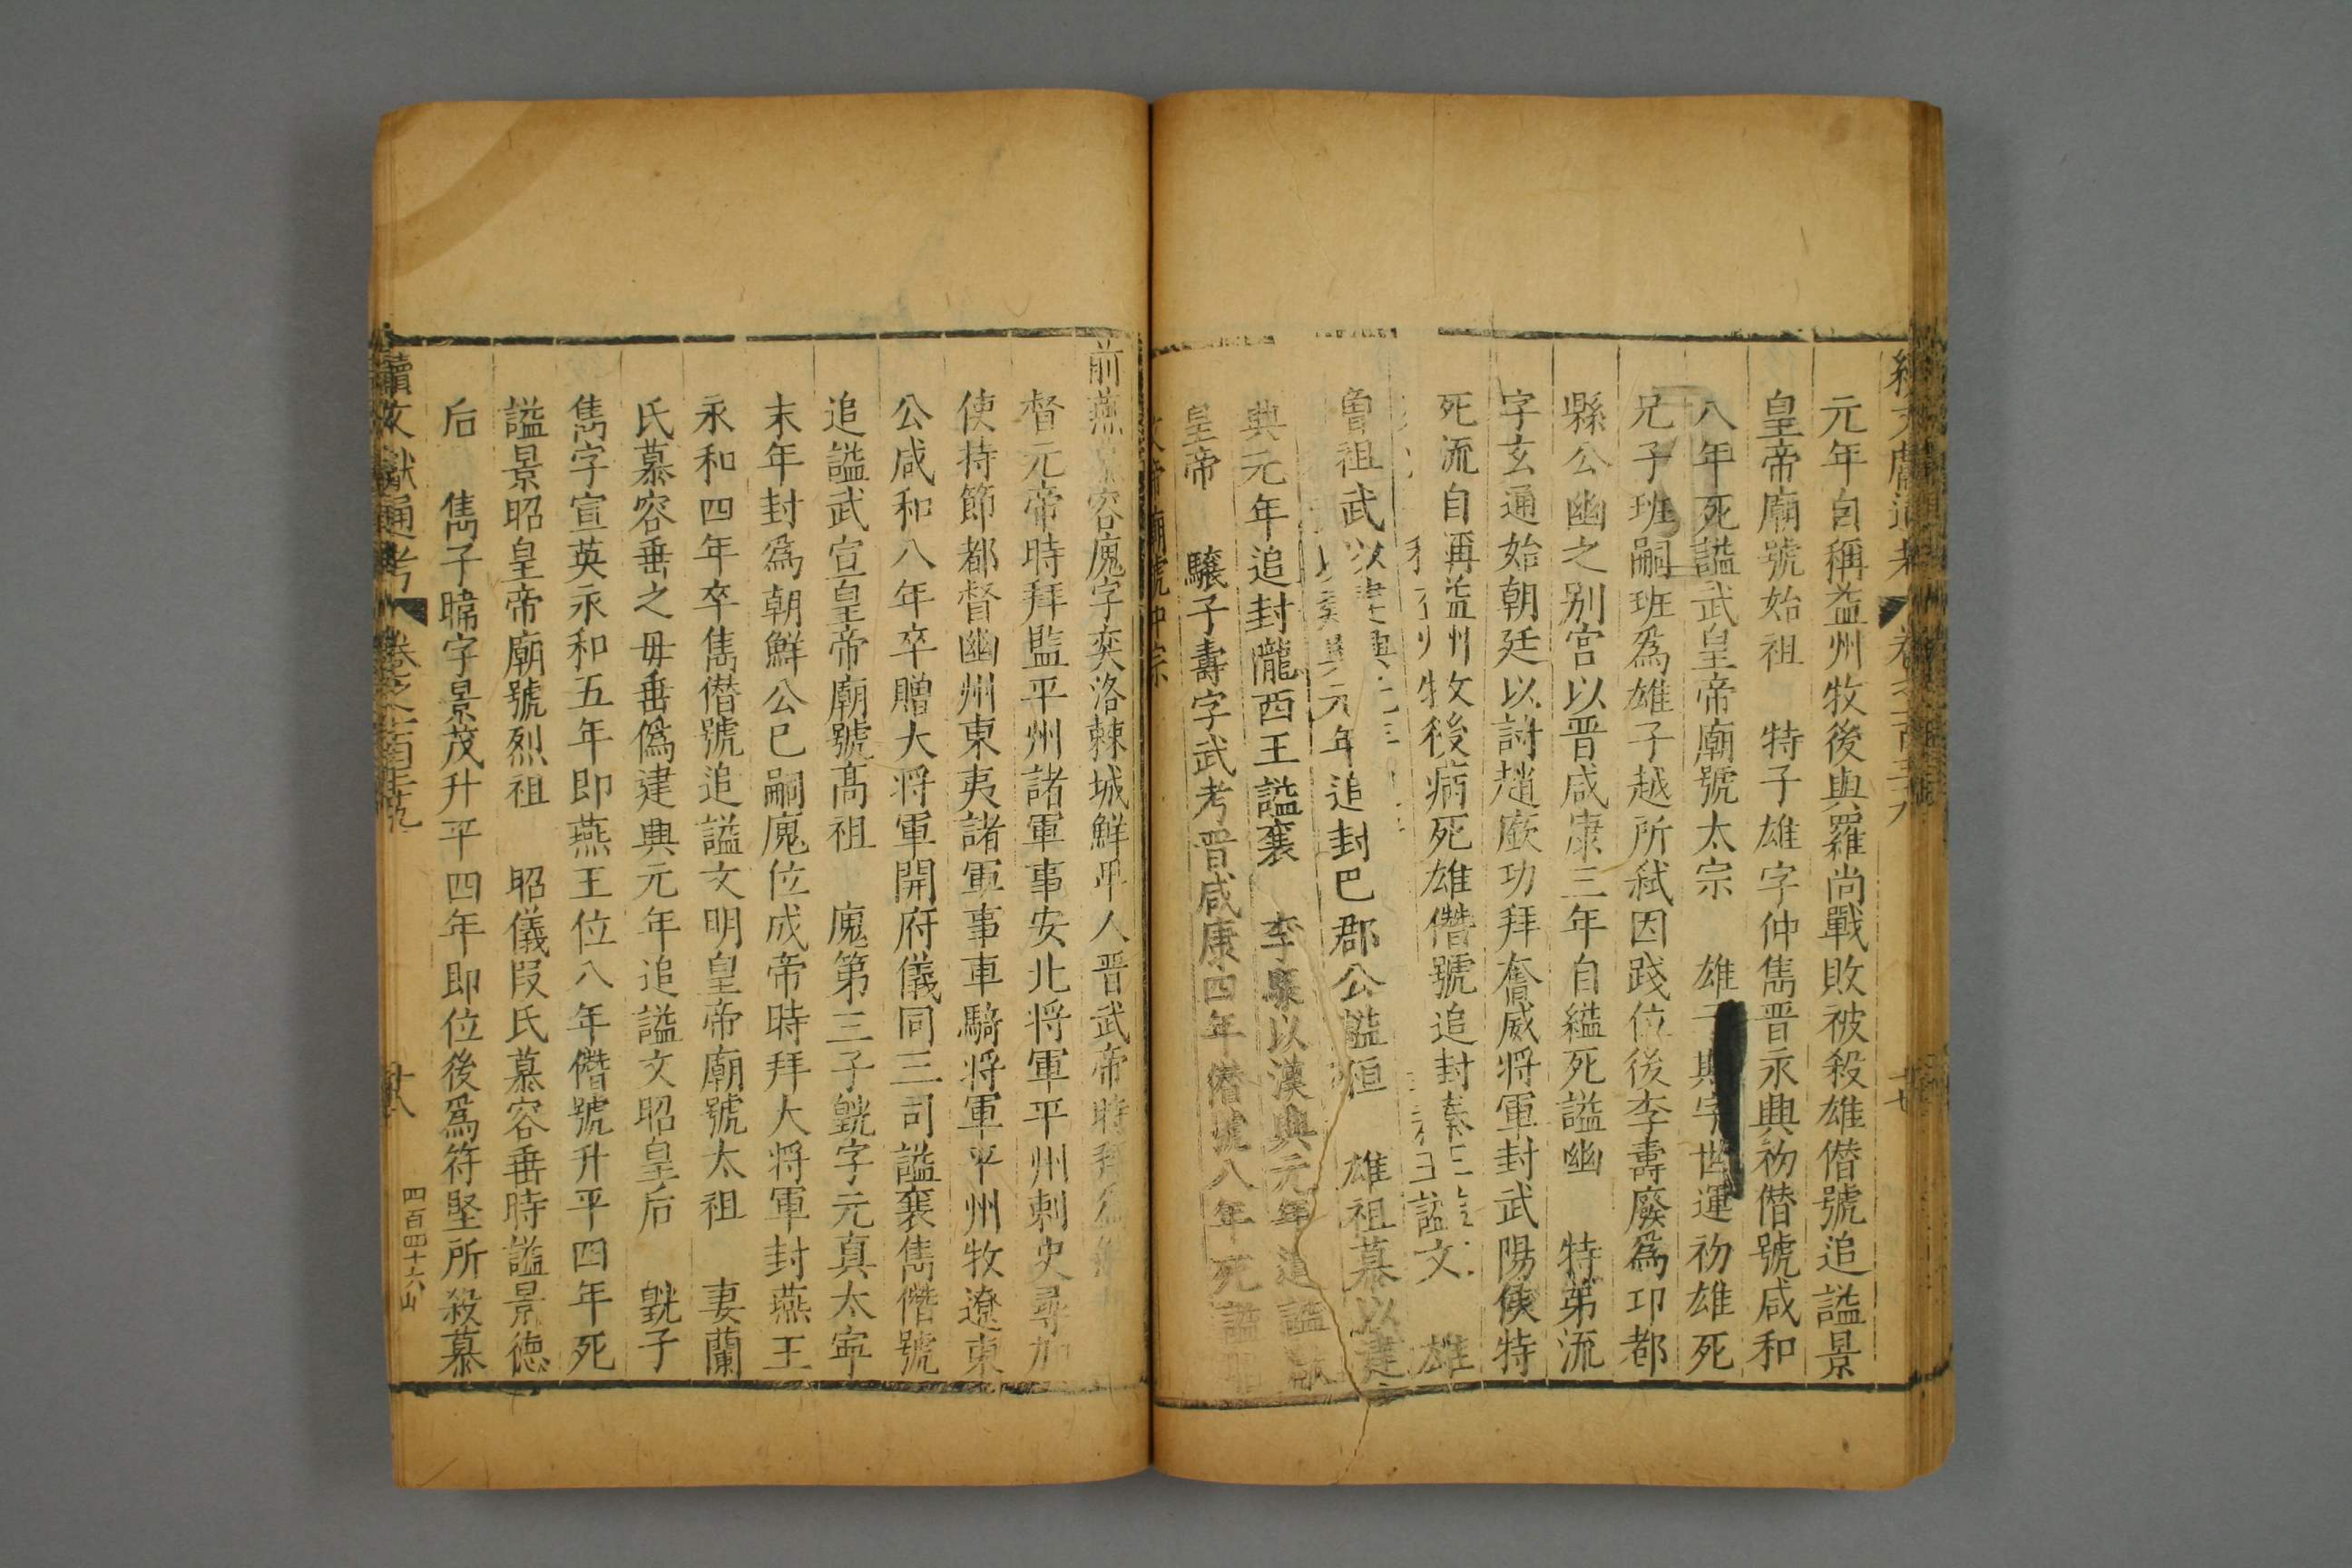 元年自稱益州牧後與羅尚戰敗被殺雄僭號追謚景
皇帝廟號始祖　特子雄字仲雋晋永興初僭號咸和
八年死謚武皇帝廟號太宗　雄　期字世運初雄死
兄子班嗣班爲雄子越所弑因踐位後李壽廢爲卭都
縣公幽之别宫以晋咸康三年自縊死謚幽　特弟流
字玄通始朝廷以討趙廞功拜奮威将軍封武陽侯特
死流自稱益州牧後病死雄僭號追封秦王謚文　雄
曾祖武以建興元年追封巴郡公謚桓　雄祖慕以建
興元年追封隴西王謚襄　李驤以漢興元年追謚獻
皇帝　驤子壽字武考晋咸康四年僭號八年死謚昭
文帝廟號中宗
前燕慕容廆字奕洛棘城鮮卑人晋武帝時拜鮮
督元帝時拜監平州諸軍事安北将軍平州刺史尋加
使持節都督幽州東夷諸軍事車騎将軍平州牧遼東
公咸和八年卒贈大将軍開府儀同三司謚襄雋僭號
追謚武宣皇帝廟號髙祖　廆第三子皝字元真太寕
末年封爲朝鮮公已嗣廆位成帝時拜大将軍封燕王
永和四年卒雋僭號追謚文明皇帝廟號太祖　妻蘭
氏慕容垂之毋垂僞建興元年追謚文昭皇后　皝子
雋字宣英永和五年即燕王位八年僭號升平四年死
謚景昭皇帝廟號烈祖　昭儀叚氏慕容垂時謚景德
后　雋子暐字景茂升平四年即位後爲符堅所殺慕
續文獻通考　卷之一百三十九
十八
四百四十六山